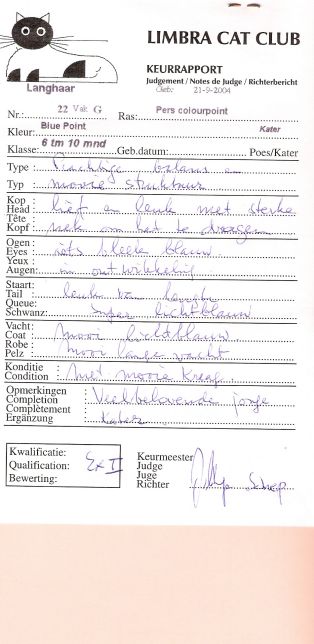 LIMBRA CAT CLUB
Langhaar
KEURRAPPORT
Judgement / Notes de Judge / Richterbericht
21-9-2004
Nr.: 22 Vak G Ras: Pers colourpoint
Kleur: Blue Point Kater
Klasse: 6 tm 10 mnd Geb.datum: Poes/Kater
Type : Prachtige balans en
Typ : mooie struktuur
Kop : lief en leuk met sterke
Head :
Tête : nek om het te dragen
Kopf :
Ogen : iets bleek blauw
Eyes :
Yeux : in ontwikkeling
Augen:
Staart: leuk van lengte
Tail :
Queue: lichtblauw
Schwanz:
Vacht: mooi lichtblauw
Coat :
Robe : mooi lange vacht
Pelz :
Konditie : Met mooie kraag
Condition :
Opmerkingen : Veelbelovende jonge
Completion
Complètement : Kater
Ergänzung
Kwalificatie:
Qualification: Ex I
Bewerting:
Keurmeester
Judge
Juge
Richter